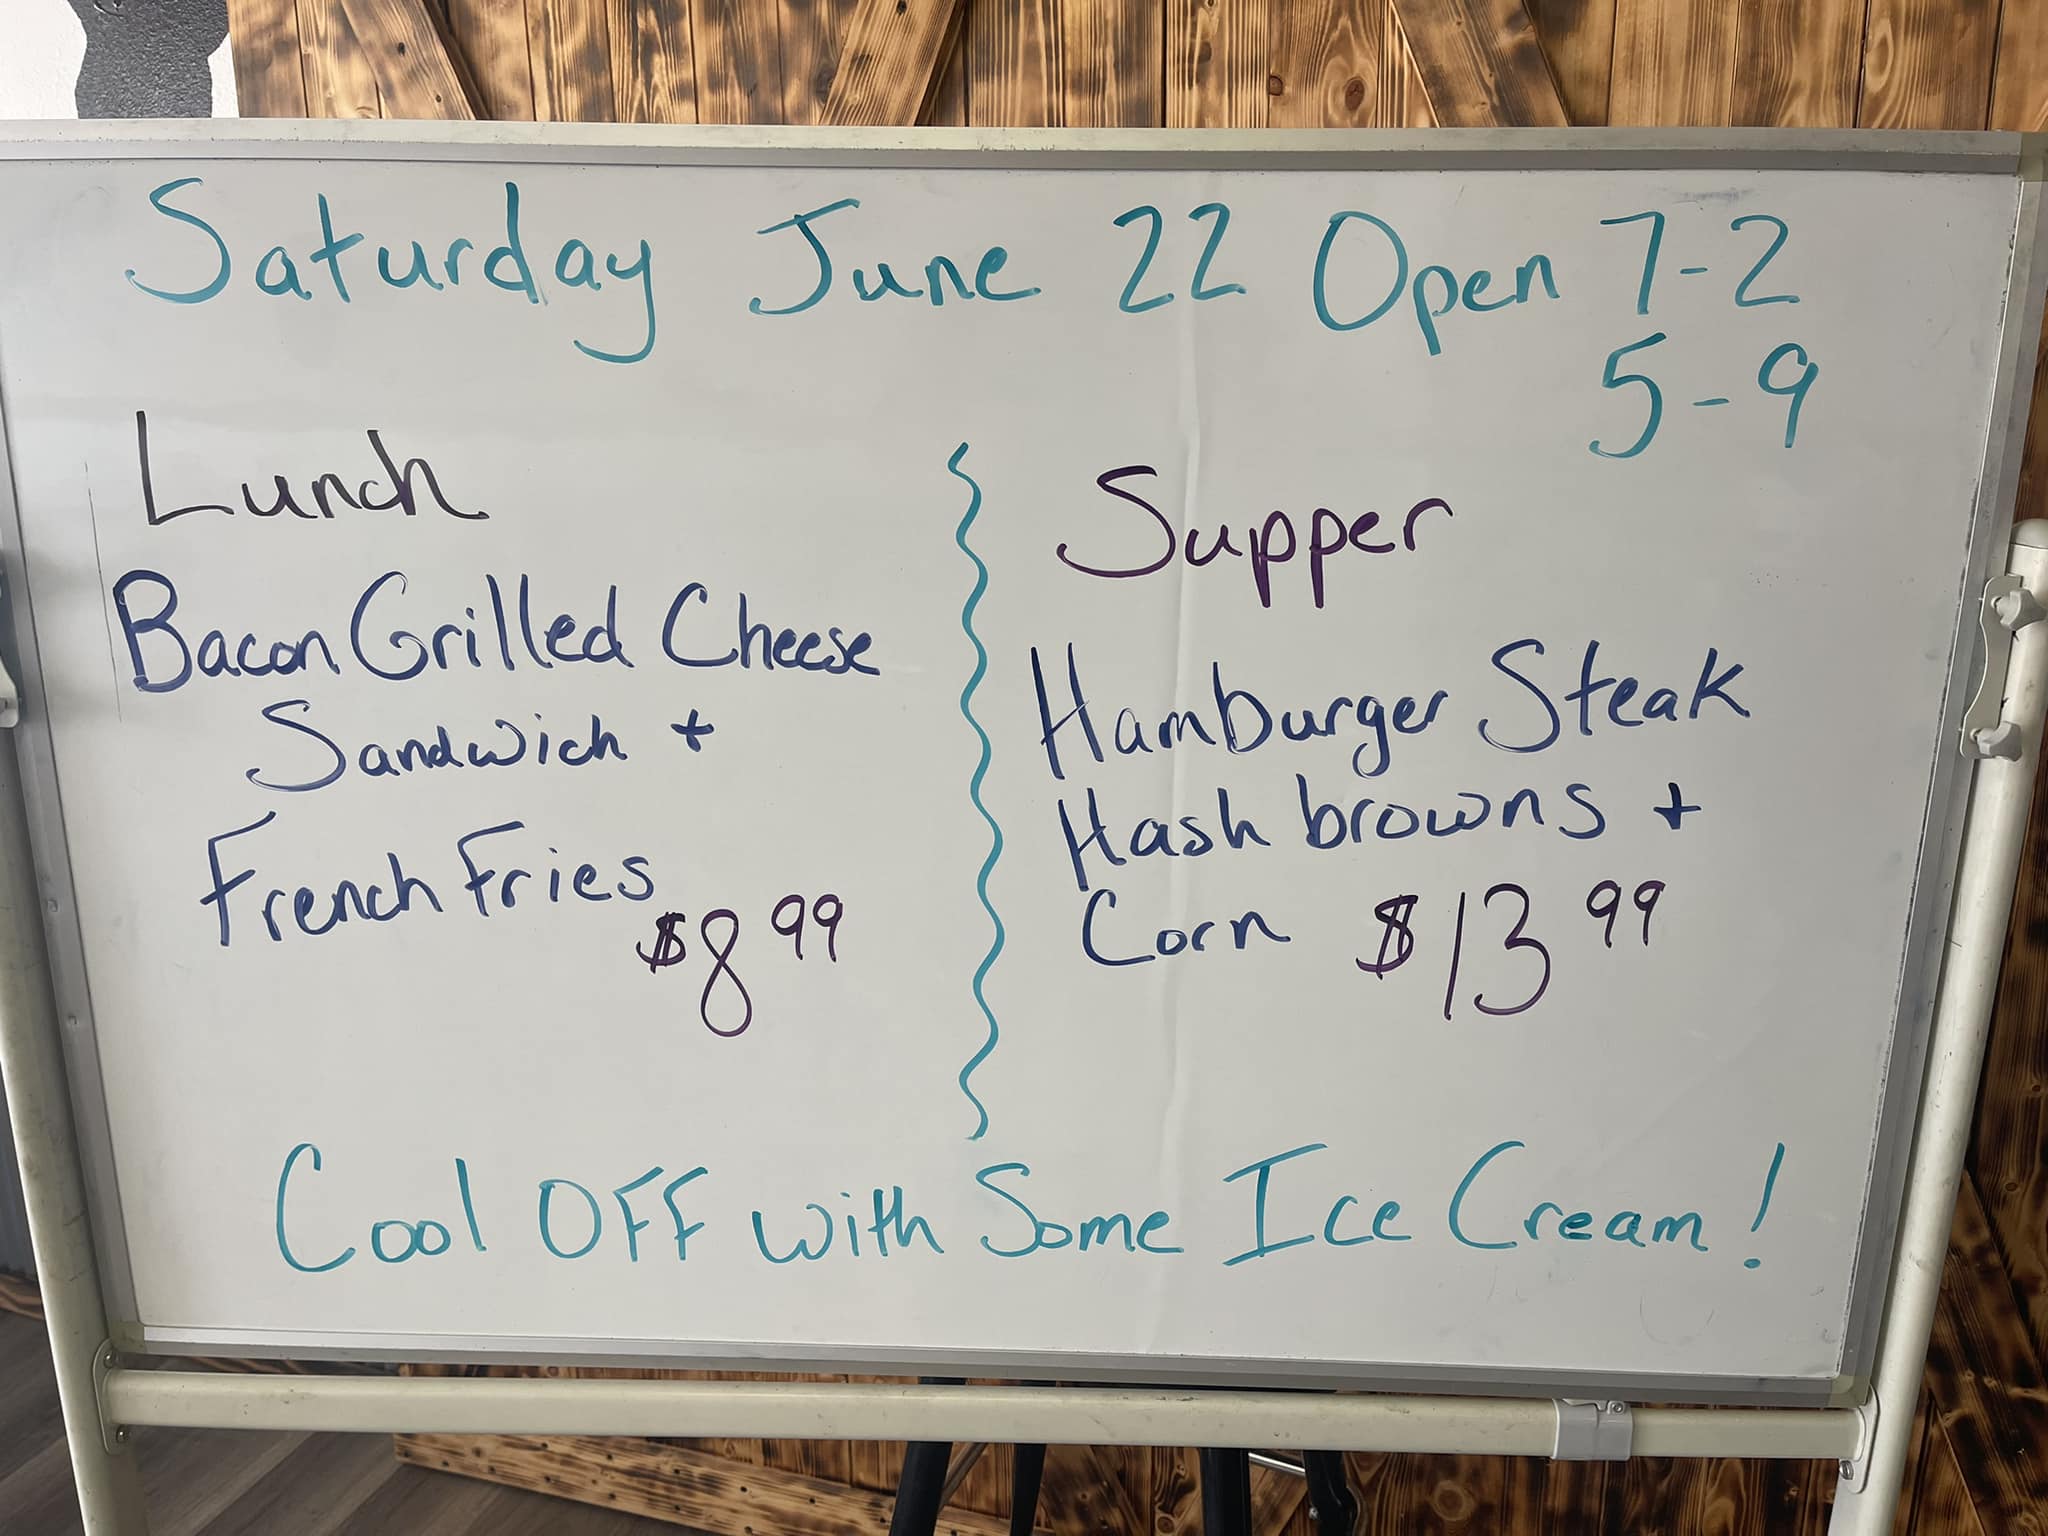 Saturday June 22 Open 7-2
5-9
Lunch
Bacon Grilled Cheese
Sandwich +
French Fries
$8 99
Supper
Hamburger Steak
Hash browns +
Corn $13 99
Cool OFF with Some Ice Cream!